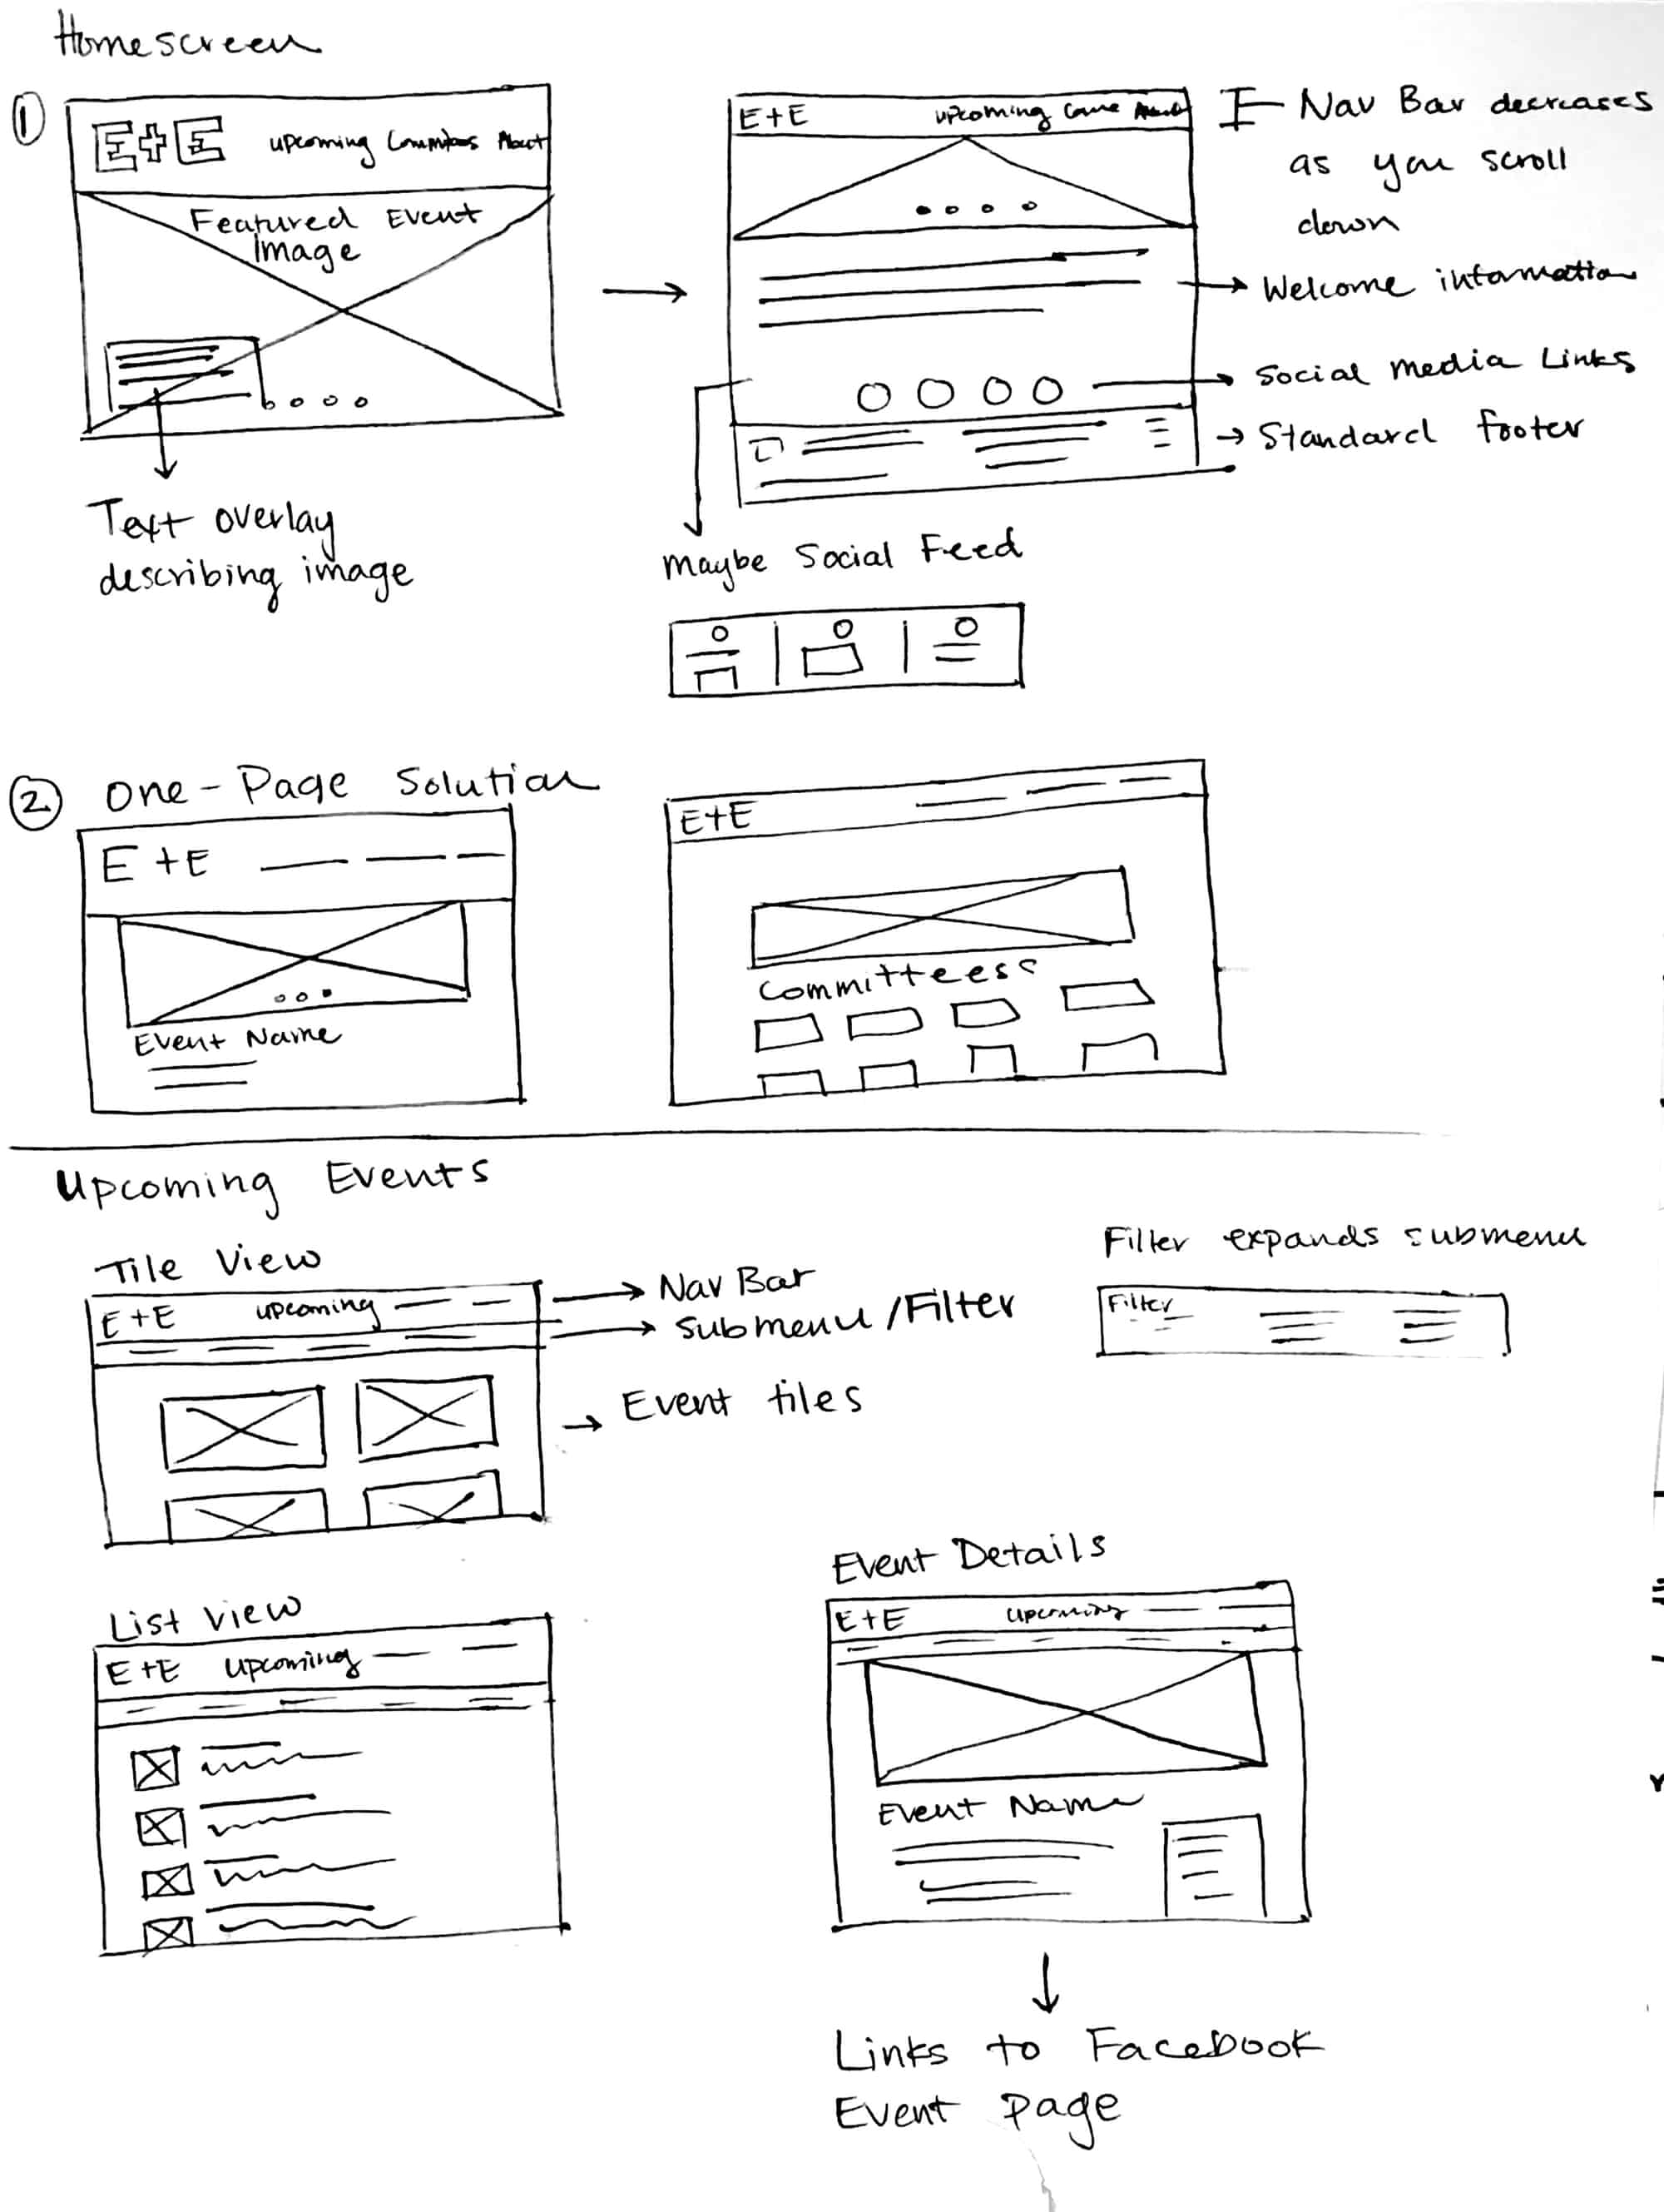 Homescreen
①
E+E upcoming Committees About
Featured Event
Image
Text overlay
describing image
E+E upcoming
Nav Bar decreases
as you scroll
down
Welcome information
Social media Links
Standard footer
Maybe Social Feed
② One-Page Solution
E+E
Event Name
E+E
Committees
Upcoming Events
Tile View
E+E upcoming
Nav Bar
Submenu/Filter
Event tiles
Filter expands submenu
Filter
List View
E+E Upcoming
Event Details
E+E upcoming
Event Name
Links to Facebook
Event Page